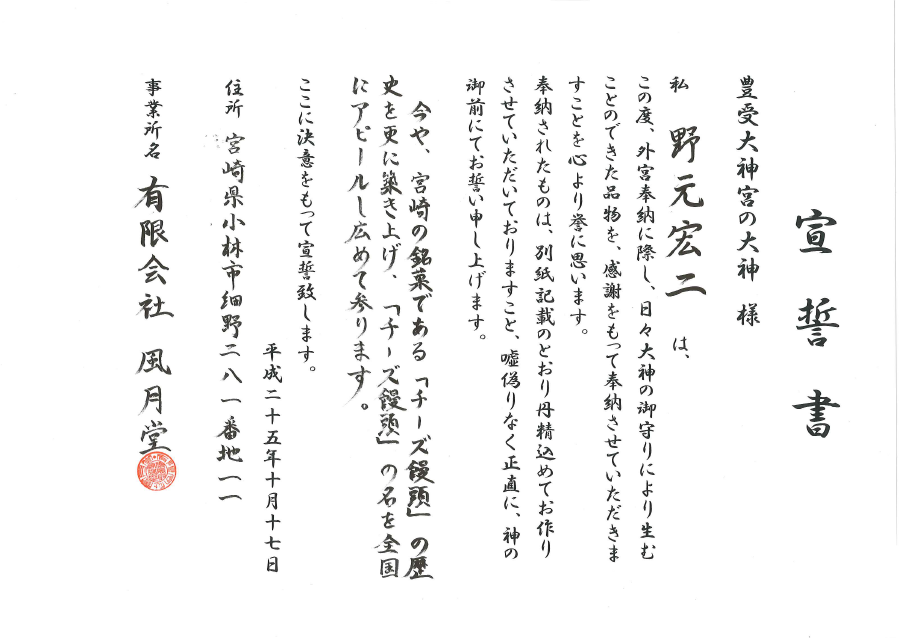 宣誓書
豊受大神宮の大神 様
私 野元宏二 は、
この度、外宮奉納に際し、日々大神の御守りにより生む
ことのできた品物を、感謝をもって奉納させていただきま
すことを心より誉に思います。
奉納されたものは、別紙記載のとおり丹精込めてお作り
させていただいておりますこと、嘘偽りなく正直に、神の
御前にてお誓い申し上げます。
今や、宮崎の銘菓である「チーズ饅頭」の歴
史を更に築き上げ、「チーズ饅頭」の名を全国
にアピールし広めて参ります。
ここに決意をもって宣誓致します。
平成二十五年十月十七日
住所 宮崎県小林市細野二八一番地一一
事業所名 有限会社 風月堂